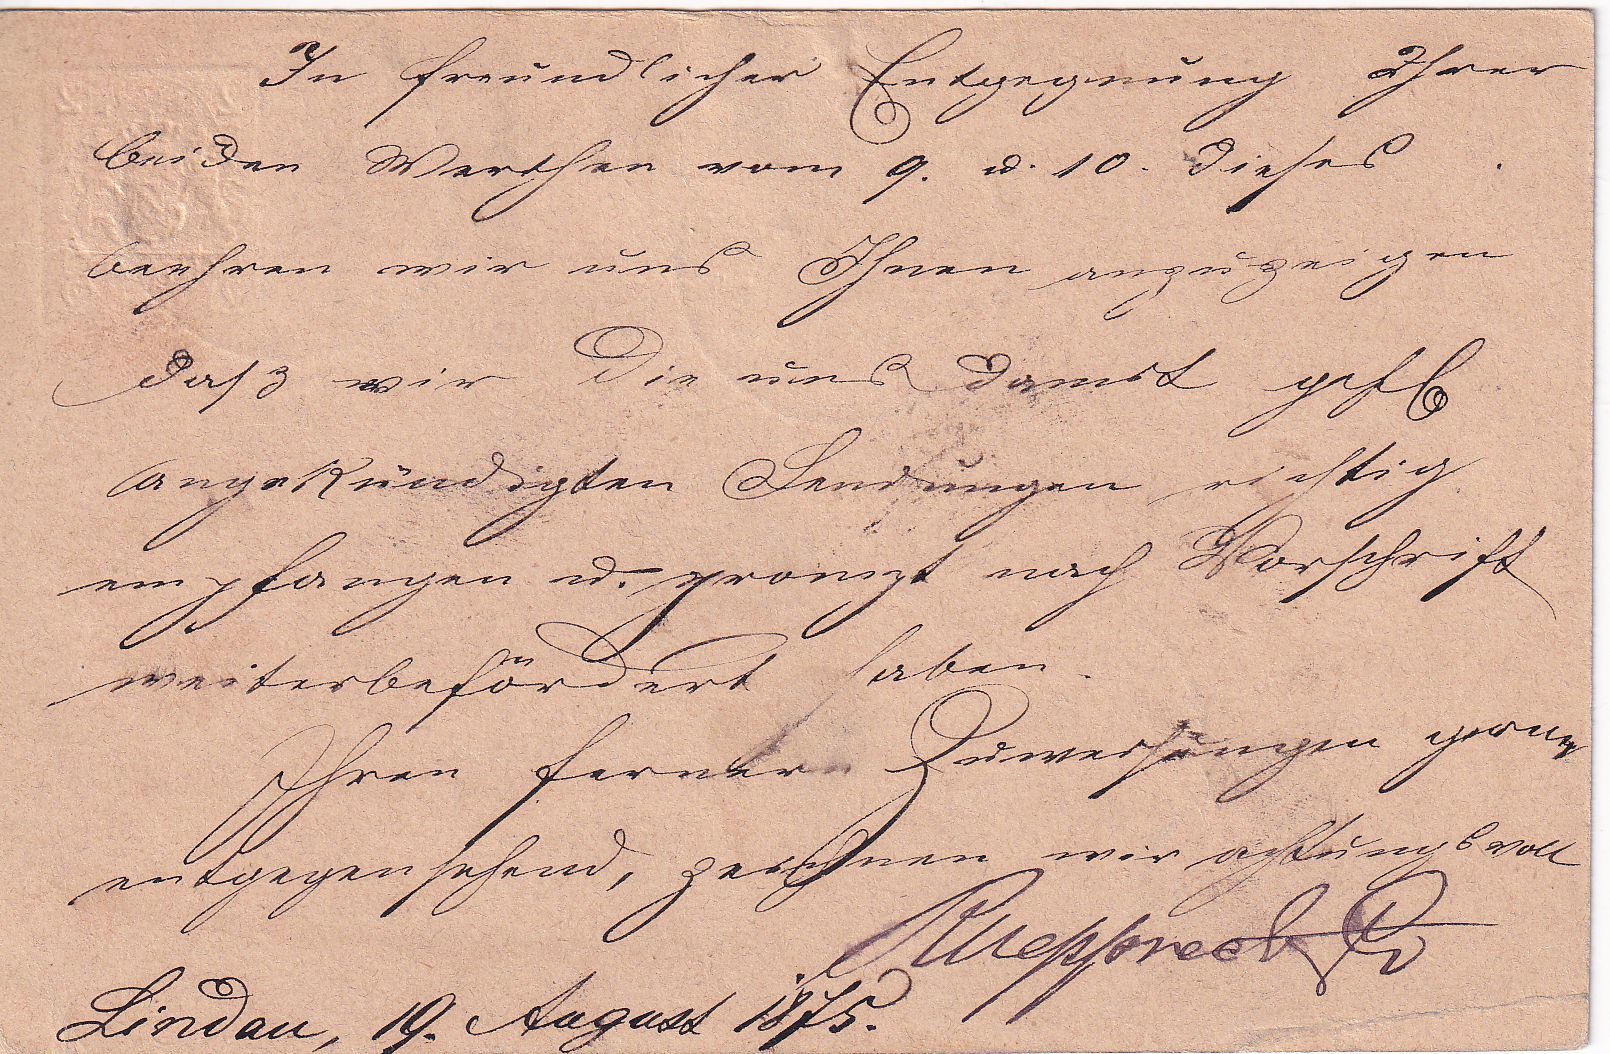 In freundlicher Entgegnung Ihrer
beiden Werthen vom 9. u. 10. dieses
beehren wir uns Ihnen anzuzeigen
daß wir die uns damit gefl
angekündigten Sendungen richtig
empfangen u. prompt nach Vorschrift
weiterbefördert haben.
Ihren fernern Zuweisungen gerne
entgegensehend, zeichnen wir achtungsvoll
Lindau, 19. August 1875.